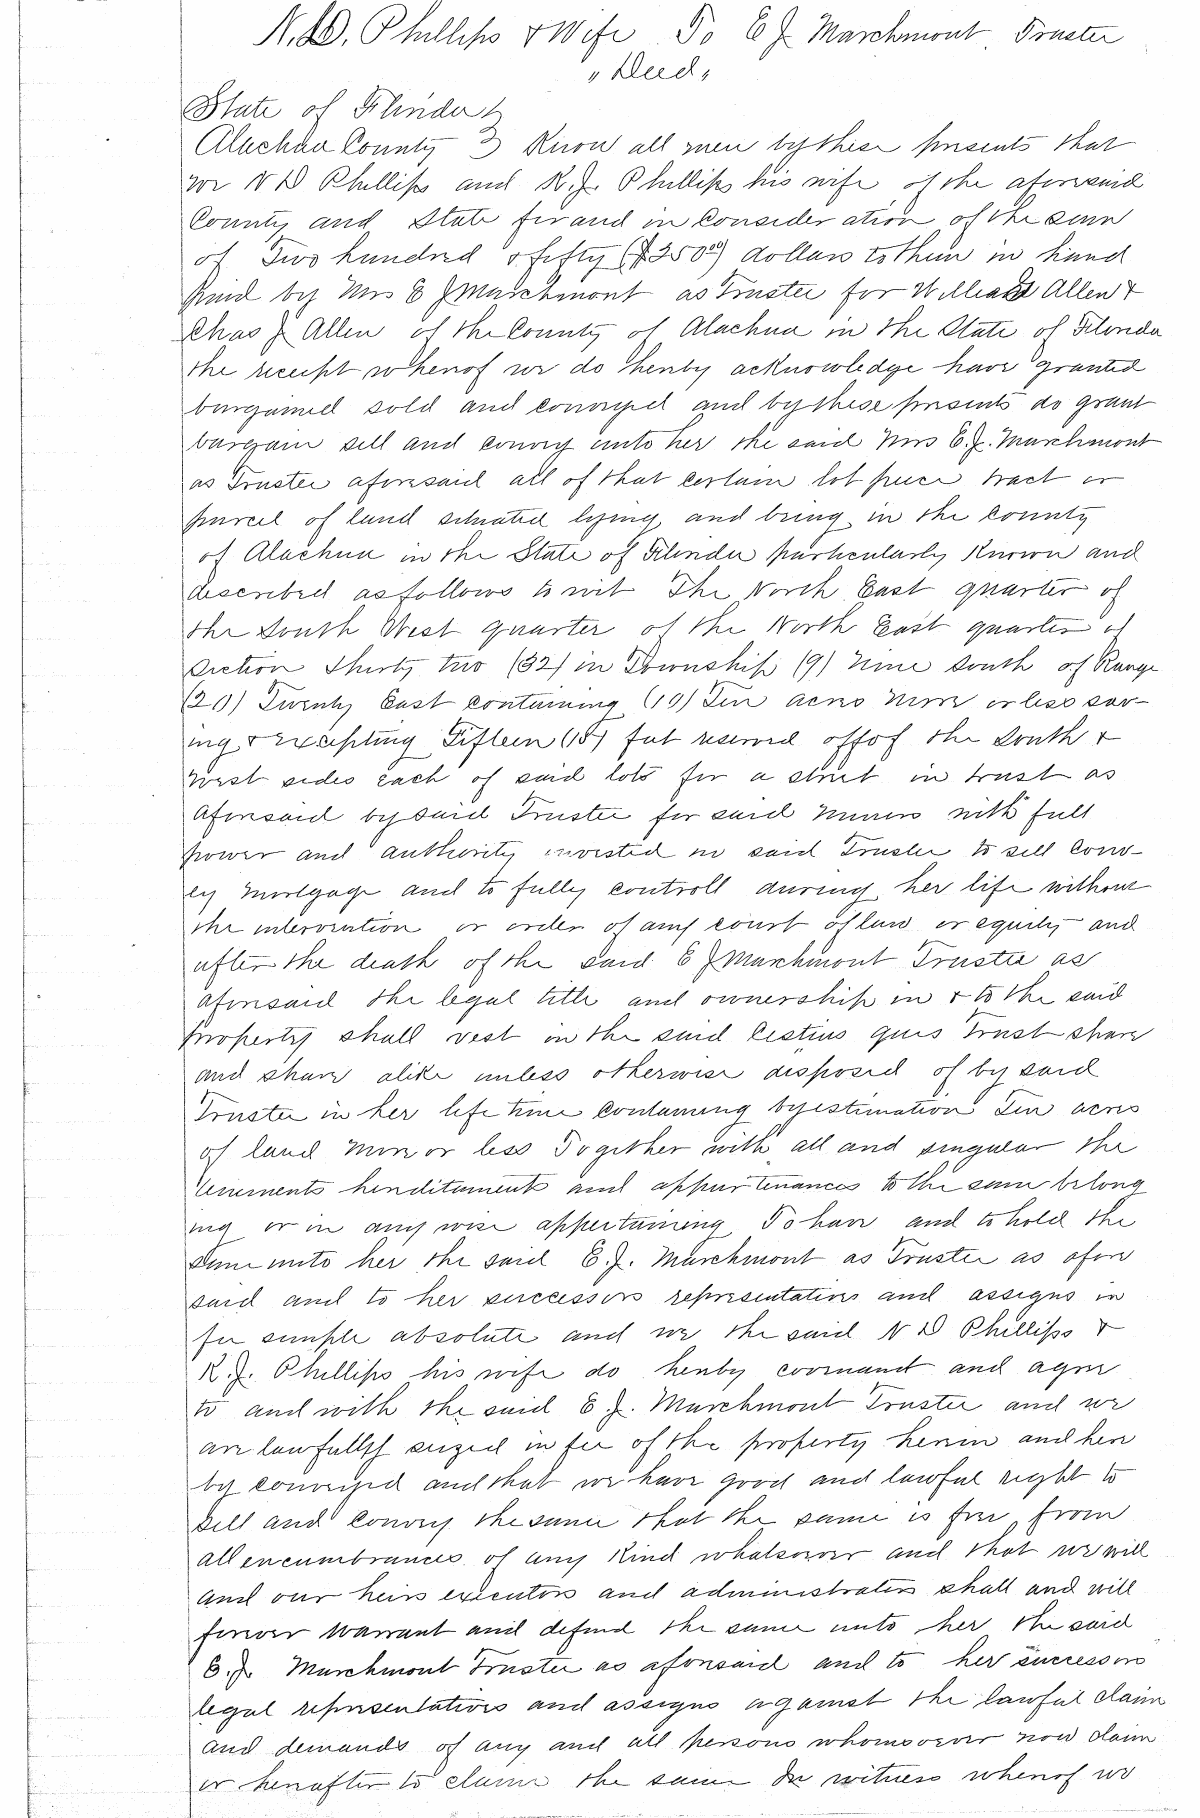 N. D. Phillips & Wife To E J Marchmont Trustee
"Deed"
State of Florida
Alachua County Know all men by these presents that
we N D Phillips and R. J. Phillips his wife of the aforesaid
County and State for and in Consideration of the sum
of Two hundred & fifty ($250⁰⁰) dollars to them in hand
paid by Mrs E J Marchmont as Trustee for William Allen &
Chas J Allen of the County of Alachua in the State of Florida
the receipt whereof we do hereby acknowledge have granted
bargained sold and conveyed and by these presents do grant
bargain sell and convey unto her the said Mrs E. J. Marchmont
as Trustee aforesaid all of that certain lot piece tract or
parcel of land situated lying and being in the county
of Alachua in the State of Florida particularly Known and
described as follows to wit The North East quarter of
the South West quarter of the North East quarter of
Section Thirty two (32) in Township (9) Nine South of Range
(20) Twenty East containing (10) Ten acres more or less sav-
ing & excepting Fifteen (15) feet reserved off of the South &
West sides each of said lots for a street in trust as
aforesaid by said Trustee for said Minors with full
power and authority invested in said Trustee to sell conv-
ey mortgage and to fully controll during her life without
the intervention or order of any court of law or equity and
after the death of the said E J Marchmont Trustee as
aforesaid the legal title and ownership in & to the said
property shall vest in the said Cestius quis Trust share
and share alike unless otherwise disposed of by said
Trustee in her life time containing by estimation Ten acres
of land more or less Together with all and singular the
tenements henditaments and appurtenances to the same belong
ing or in any wise appertaining To have and to hold the
same unto her the said E. J. Marchmont as Trustee as afore
said and to her successors representatives and assigns in
fee simple absolute and we the said N D Phillips &
R. J. Phillips his wife do hereby covenant and agree
to and with the said E. J. Marchmont Trustee and we
are lawfully seized in fee of the property herein and here
by conveyed and that we have good and lawful right to
sell and convey the same that the same is free from
all encumbrances of any Kind whatsoever and that we will
and our heirs executors and administrators shall and will
forever warrant and defend the same unto her the said
E. J. Marchmont Trustee as aforesaid and to her successors
legal representatives and assigns against the lawful claim
and demands of any and all persons whomsoever now claim
or hereafter to claim the same In witness whereof we